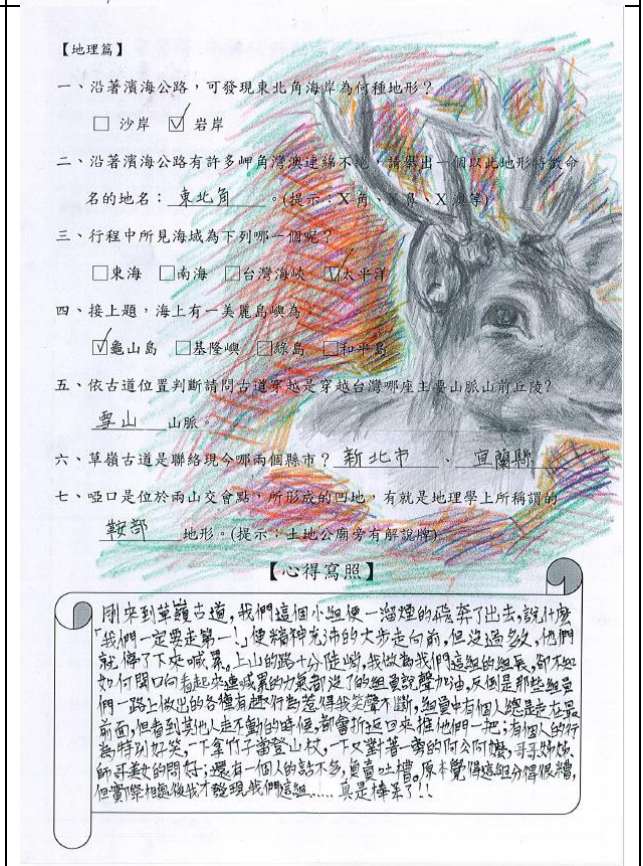 【地理篇】
一、沿著濱海公路，可發現東北角海岸為何種地形？
□ 沙岸 ☑ 岩岸
二、沿著濱海公路有許多岬角灣澳連綿不絕，請舉出一個以此地形特徵命
名的地名：東北角。(提示：X角、X鼻、X澳等)
三、行程中所見海域為下列哪一個呢？
□東海 □南海 □台灣海峽 ☑太平洋
四、接上題，海上有一美麗島嶼為：
☑龜山島 □基隆嶼 □綠島 □和平島
五、依古道位置判斷請問古道穿越是穿越台灣哪座主要山脈山前丘陵?
雪山 山脈。
六、草嶺古道是聯絡現今哪兩個縣市？新北市、宜蘭縣
七、啞口是位於兩山交會點，所形成的凹地，有就是地理學上所稱謂的
鞍部 地形。(提示：土地公廟旁有解說牌)
【心得寫照】
剛來到草嶺古道，我們這個小組便一溜煙的飛奔了出去，說什麼
「我們一定要走第一！」便精神充沛的大步走向前，但沒過多久，他們
就停了下來喊累。上山的路十分陡峭，我做為我們這組的組長，卻不知
如何開口向看起來連喊累的力氣都沒了的組員說聲加油，反倒是那些組員
們一路上做出的各種有趣行為惹得我笑聲不斷，組員中有個人總是走在最
前面，但看到其他人走不動的時候，都會折返回來推他們一把；有個人的行
為特別好笑，一下拿竹子當登山杖，一下又對著一旁的阿公阿嬤，哥哥姊姊，
帥哥美女的問好；還有一個人的話不多，負責吐槽。原本覺得這組分得很糟，
但實際相處後我才發現我們這組......真是棒呆了!!